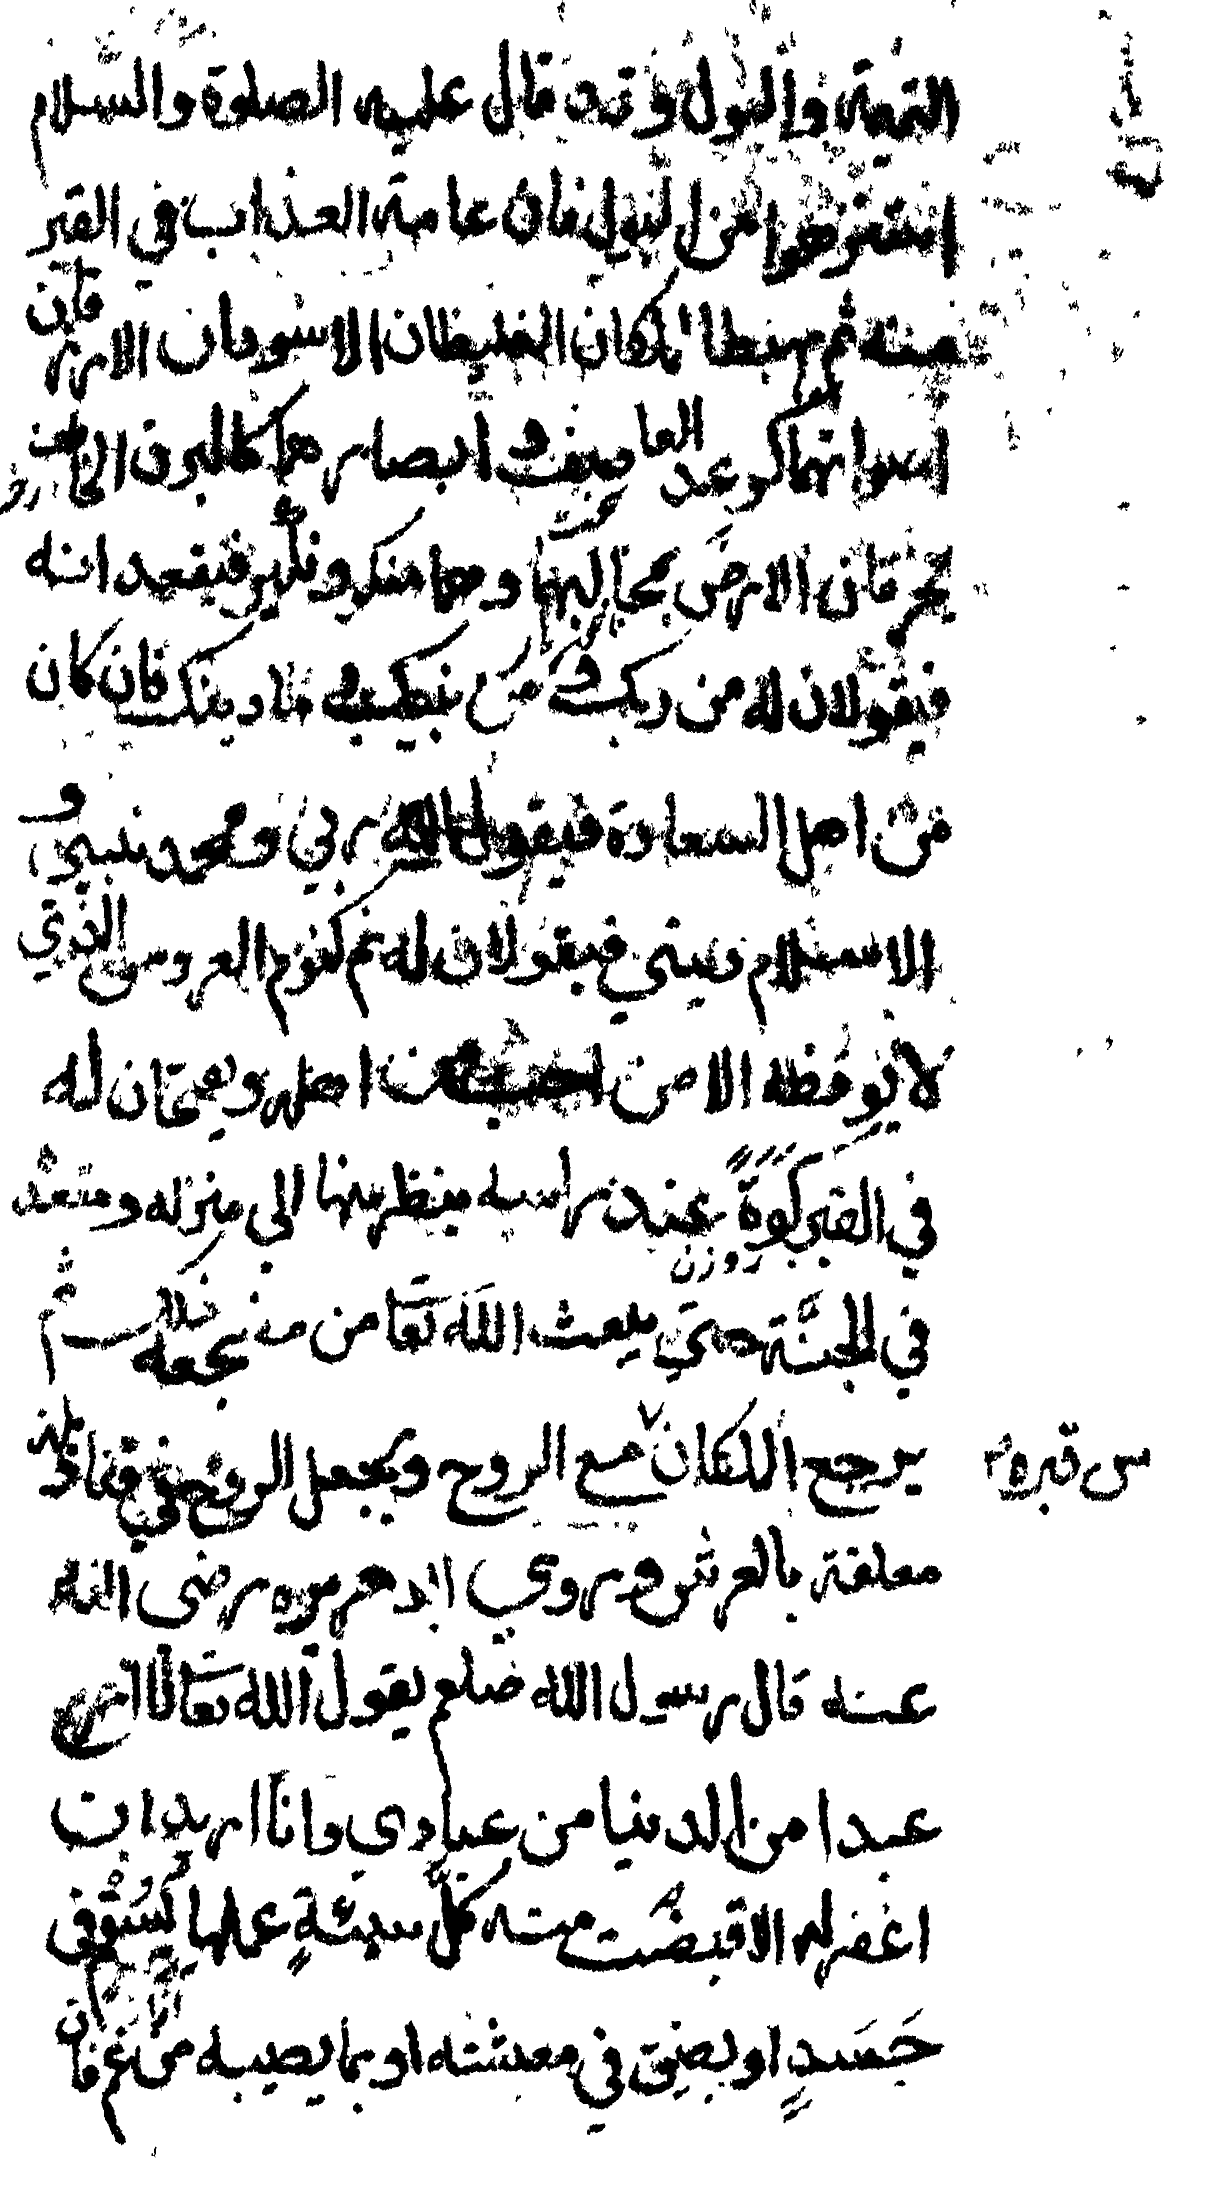 النميمة والبول وقد قال عليه الصلوة والسلام
استنزهوا من البول فان عامة العذاب في القبر
منه ثم يهبطا ملكان الغليظان الاسودان الازرقان
اصواتهما كوعد العا صف و ابصارهما كالبرق الخاطف
يخرقان الارض بمخاليبهما ومعهما منكر ونكير فيقعدانه
فيقولان له من ربك و من نبيك و ما دينك فان كان
من اهل السعادة فيقول الله ربي و محمد نبيي و
الاسلام ديني فيقولان له نم كنوم العروس الذي
لا يوقظه الا من احب من اهله ويفتحان له
في القبر كوة عند راسه فينظر منها الى منزله ومقعده
روزن
في الجنة حتى يبعث الله تعا من مضجعه ثم
يرجع الملكان مع الروح ويجعل الروح في قناديل
من قبره
معلقة بالعرش وروي ابو هريره رضى الله
عنه قال رسول الله صلعم يقول الله تعالى لا اخرج
عبدا من الدنيا من عبادي وانا اريد ان
اغفر له الا اقبضت منه كل سيئة عملها بسقم في
جسد او بضيق في معيشته او بما يصيبه من غم فان